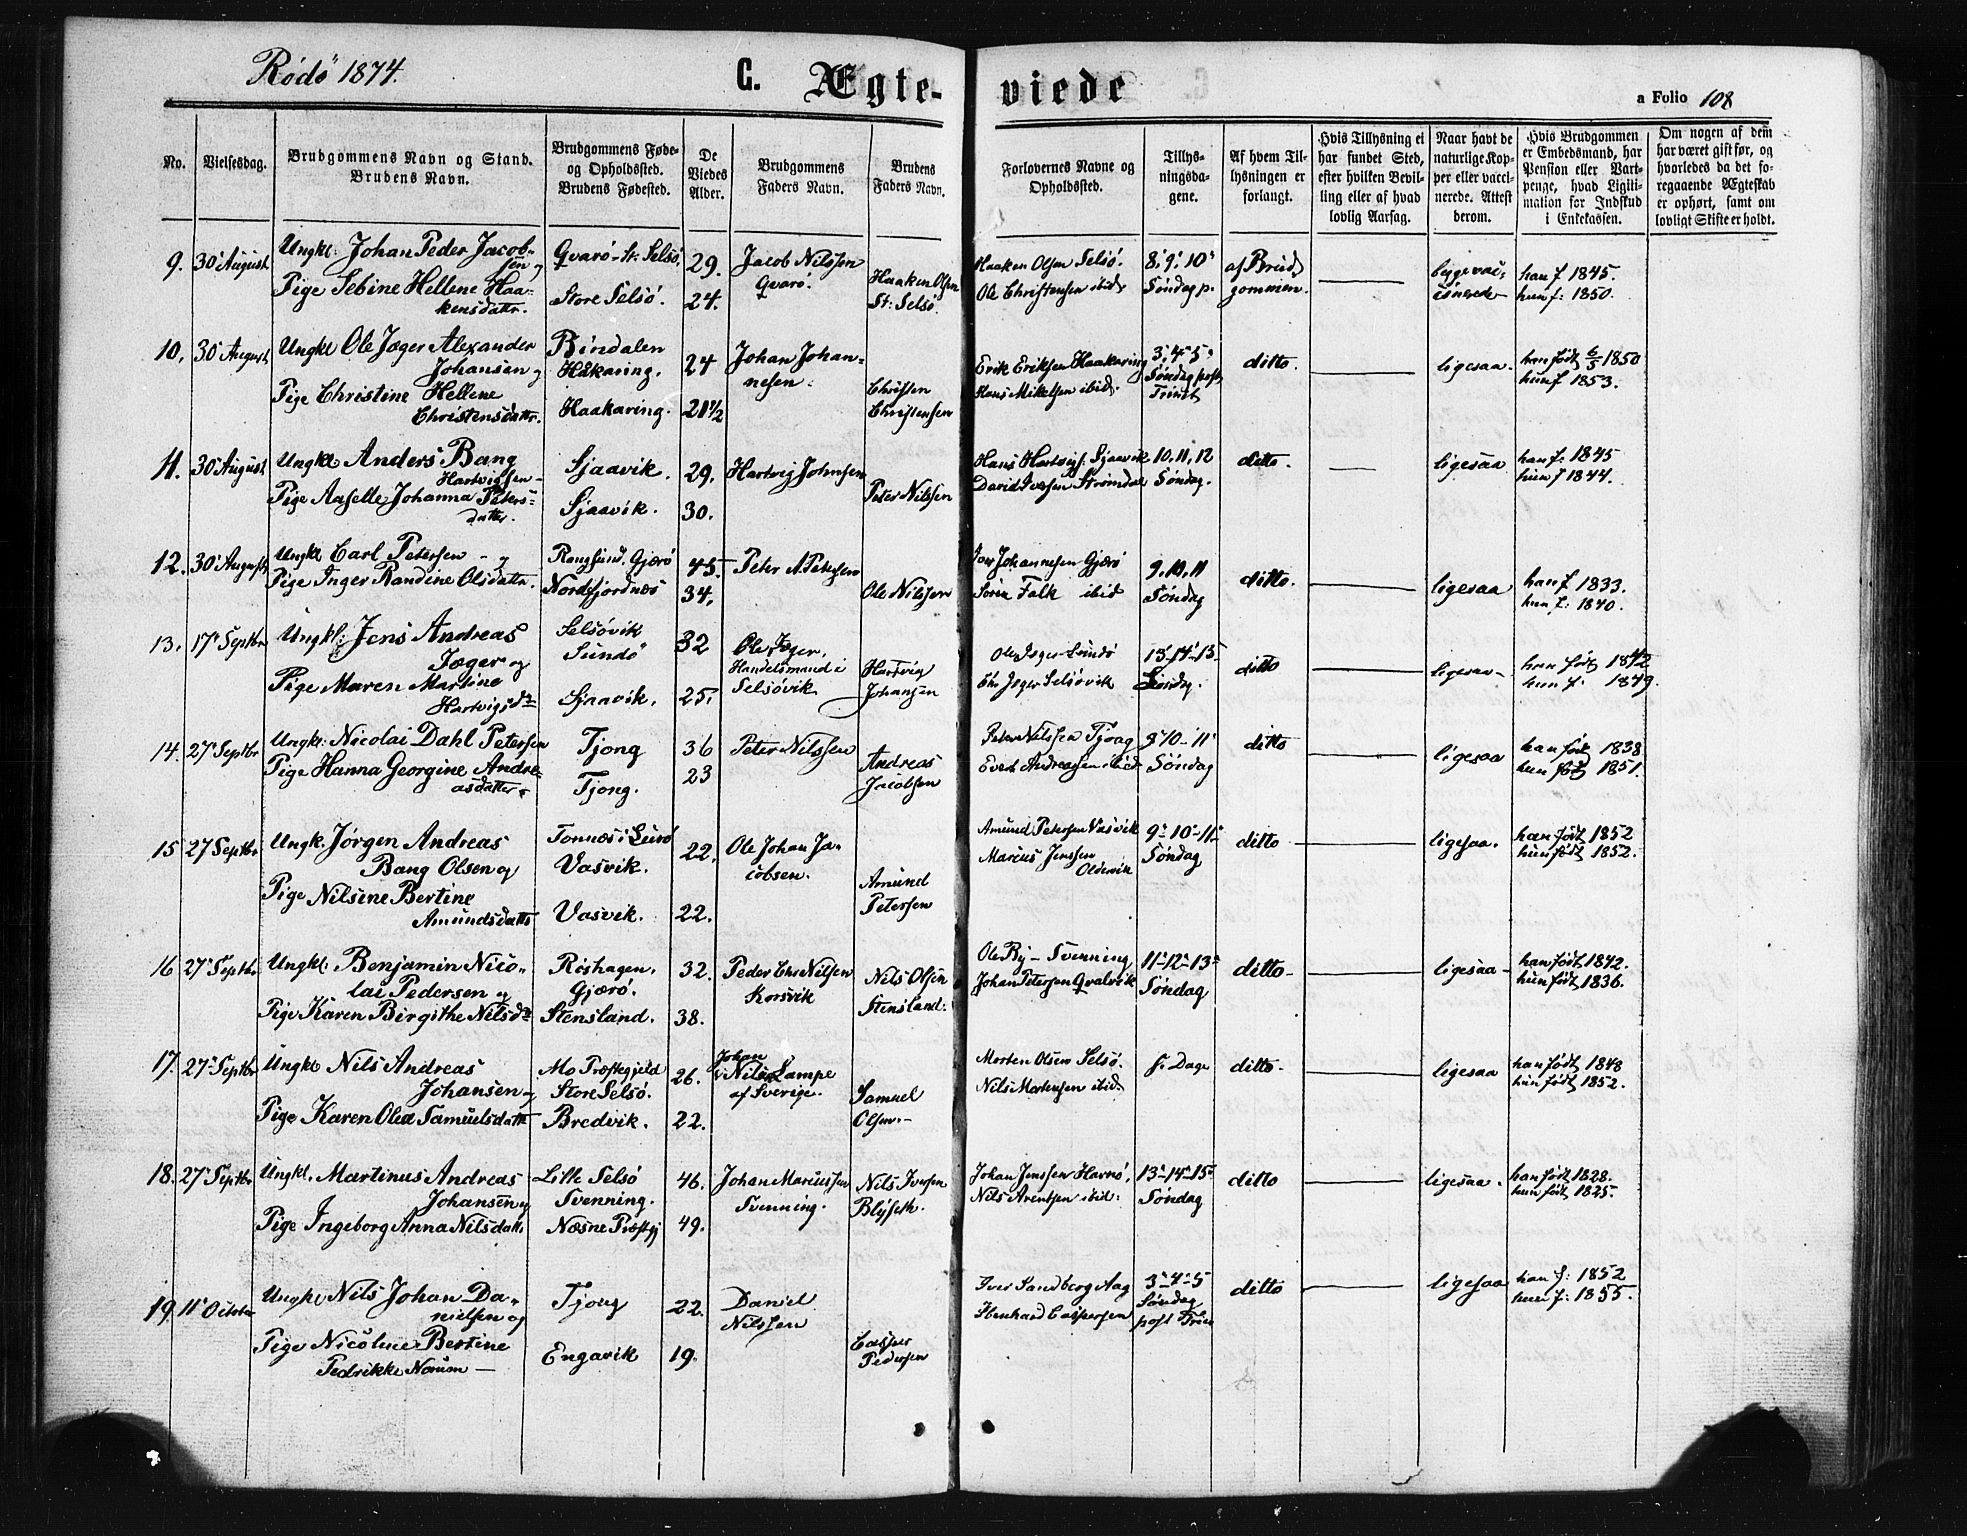 Rödö 1874.
G. Ægte-
viede
a Folio 108
No.
Vielsesdag.
Brudgommens Navn og Stand.
Brudens Navn.
Brudgommens Føde-
og Opholdssted.
Brudens Fødested.
De
Viedes
Alder.
Brudgommens
Faders Navn.
Brudens
Faders Navn.
Forlovernes Navne og
Opholdssted.
Tillys-
ningsda-
gene.
Af hvem Til-
lysningen er
forlangt.
Hvis Tillysning ei
har fundet Sted,
efter hvilken Bevil-
ling eller af hvad
lovlig Aarsag.
Naar havt de
naturlige Kop-
per eller vacci-
nerede. Attest
derom.
Hvis Brudgommen
er Embedsmand, har
Pension eller Vart-
penge, hvad Ligiti-
mation for Indskud
i Enkekassen.
Om nogen af dem
har været gift før, og
hvorledes da det fo-
regaaende Ægteskab
er ophørt, samt om
lovligt Skifte er holdt.
9. 30 August
Ungkl: Johan Peder Jacob-
sen og
Pige Sebine Hellene Haa-
kensdattr.
Qvarö - St: Selsö.
Store Selsö.
29.
24.
Jacob Nilssen
Qvarö.
Haaken Olsen
St: Selsö.
Haaken Olsen Selsö.
Ole Christensen ibid.
8, 9, 10
Söndag p.
af Brud
gommen.
begge vac-
cinerede
han f. 1845.
hun f: 1850.
10. 30 August
Ungkl Ole Jæger Alexander
Johansen og
Pige Christine Hellene
Christensdattr.
Bindalen
Haakaring.
Haakaring.
24
21 1/2
Johan Johan-
nesen.
Christen
Christensen
Erik Eriksen Haakaring
Hans Mikelsen ibid.
3, 4, 5,
Söndag post
Trinit
ditto.
ligesaa.
han födt 6/5 1850
hun f 1853.
11. 30 August
Ungkl Anders Bang
Hartvigsen -
Pige Anselle Johanna Peters-
datter.
Sjaavik.
Sjaavik.
29.
30.
Hartvig Johnsen
Peter Nilssen
Hans Hartvigs: Sjaavik
David Iversen Strömdal
10. 11, 12
Söndag.
ditto.
ligesaa
han f: 1845
hun f 1844.
12. 30 August
Ungkl Carl Petersen - og
Pige Inger Randine Olsdattr.
Rangsund. Gjærö
Nordfjordnæs
45.
34.
Peter A. Petersen
Ole Nilssen
Johannesen Gjærö
Sörin Falk ibid
9, 10, 11
Söndag
ditto.
ligesaa
han f. 1833.
hun f. 1840.
13. 17 Septbr
Ungkl: Jens Andreas
Jæger og
Pige Maren Martine
Hartvigsdr
Selsövik
Sundö
Sjaavik.
32
25.
Ole Jæger,
Handelsmand i
Selsövik
Hartvig
Johansen
Ole Jæger Sundö
Chr Jæger Selsövik
13-14-15
Söndag.
ditto
ligesaa -
han födt 1842
hun f. 1849.
14. 27 Septbr
Ungkl: Nicolai Dahl Petersen
Pige Hanna Georgine Andre-
asdatter
Tjong
Tjong.
36
23
Peter Nilssen
Andreas
Jacobsen
Peter Nilssen Tjong
Evert Andreassen ibid
9 10 - 11
Söndag
ditto
ligesaa
han födt 1838
hun födt 1851.
15 27 Septbr
Ungk. Jörgen Andreas
Bang Olsen og
Pige Nilsine Bertine
Amundsdattr
Tonnæs i Lurö
Vasvik.
Vasvik.
22.
22.
Ole Johan Ja-
cobsen.
Amund
Petersen
Amund Petersen Vasvik
Marcus Jenssen
Oldervik
9-10-11
Söndag
ditto
ligesaa.
han födt 1852
hun födt 1852.
16 27 Septbr
Ungkl. Benjamin Nico-
lai Pedersen og
Pige Karen Birgithe Nilsdr
Röshagen,
Gjærö.
Stensland.
32.
38.
Peder Chr Nilsen
Korsvik
Nils Olsen
Stensland.
Ole By - Svenning
Johan Petersen Qvalvik
11-12-13
Söndag
ditto -
ligesaa -
han födt 1842.
hun födt 1836.
17. 27 Septbr
Ungkl Nils Andreas
Johansen og
Pige Karen Olea Samuelsdattr
Mo Præstegjeld
Store Selsö.
Bredvik.
26.
22.
Johan
Nils Lampe
af Sverige.
Samuel
Olsen -
Morten Olsen Selsö.
Nils Mortensen ibid
s: Dage
ditto.
ligesaa
han födt 1848
hun födt 1852.
18. 27 Septbr
Ungkl. Martinus Andreas
Johansen og
Pige Ingeborg Anna Nilsdattr
Lille Selsö
Svenning.
Næsne Præstgj
46.
49.
Johan Mariussen
Svenning.
Nils Iversen
Blyseth.
Johan Jenssen Havnö,
Nils Arentsen ibid:
13-14-15
Söndag
ditto
ligesaa.
han födt 1828.
hun födt 1825.
19. 11 October
Ungkl Nils Johan Da-
nielsen og
Pige Nicoline Bertine
Pedrikke Norum -
Tjong
Engavik
22.
19.
Daniel
Nilssen
Casper
Pedersen
Iver Sandberg Aag
Ebenhard Caspersen
3-4-5
Söndag
post Trin
ditto
ligesaa
han f: 1852
hun f: 1855.